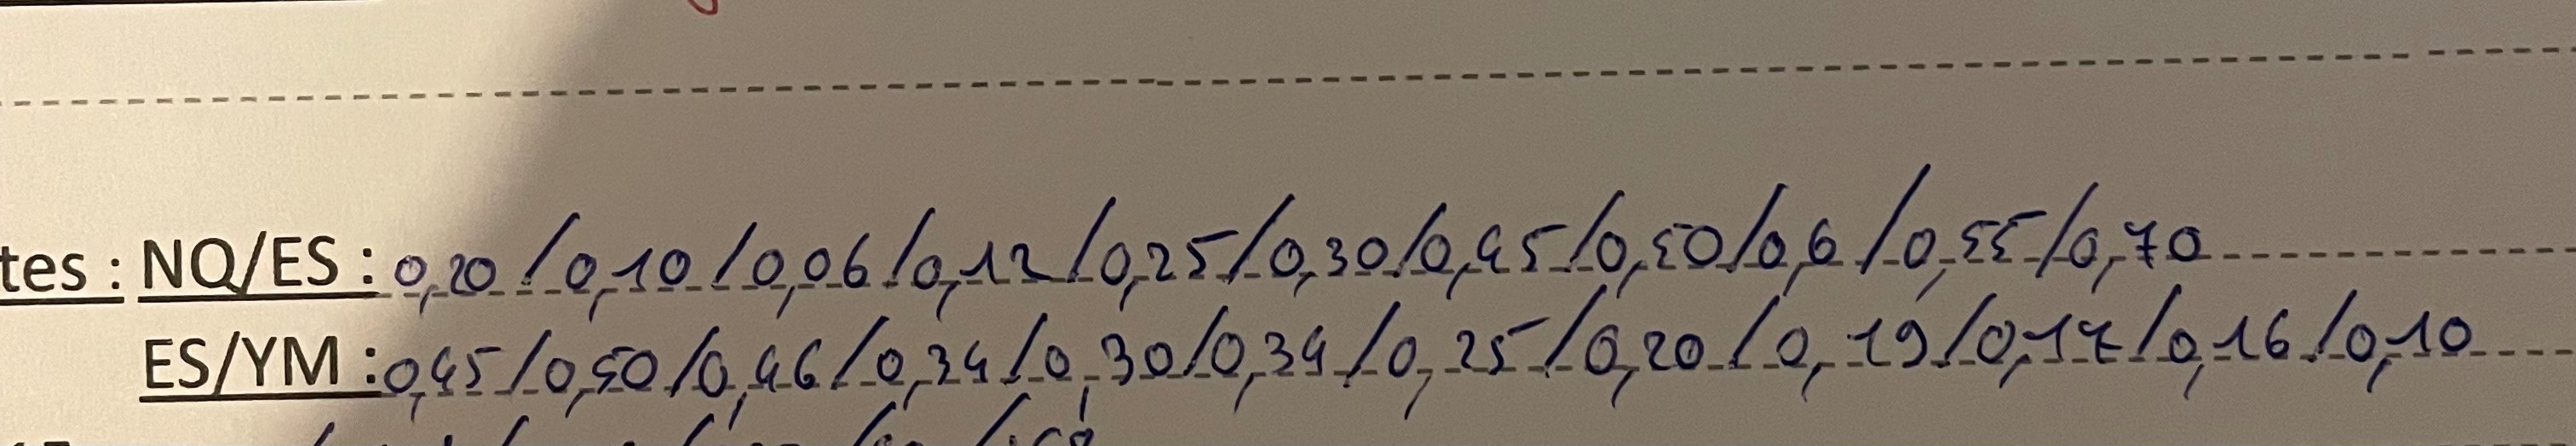 tes : NQ/ES : 0,20 / 0,10 / 0,06 / 0,12 / 0,25 / 0,30 / 0,45 / 0,50 / 0,6 / 0,55 / 0,70
ES/YM : 0,45 / 0,50 / 0,46 / 0,34 / 0,30 / 0,34 / 0,25 / 0,20 / 0,19 / 0,17 / 0,16 / 0,10